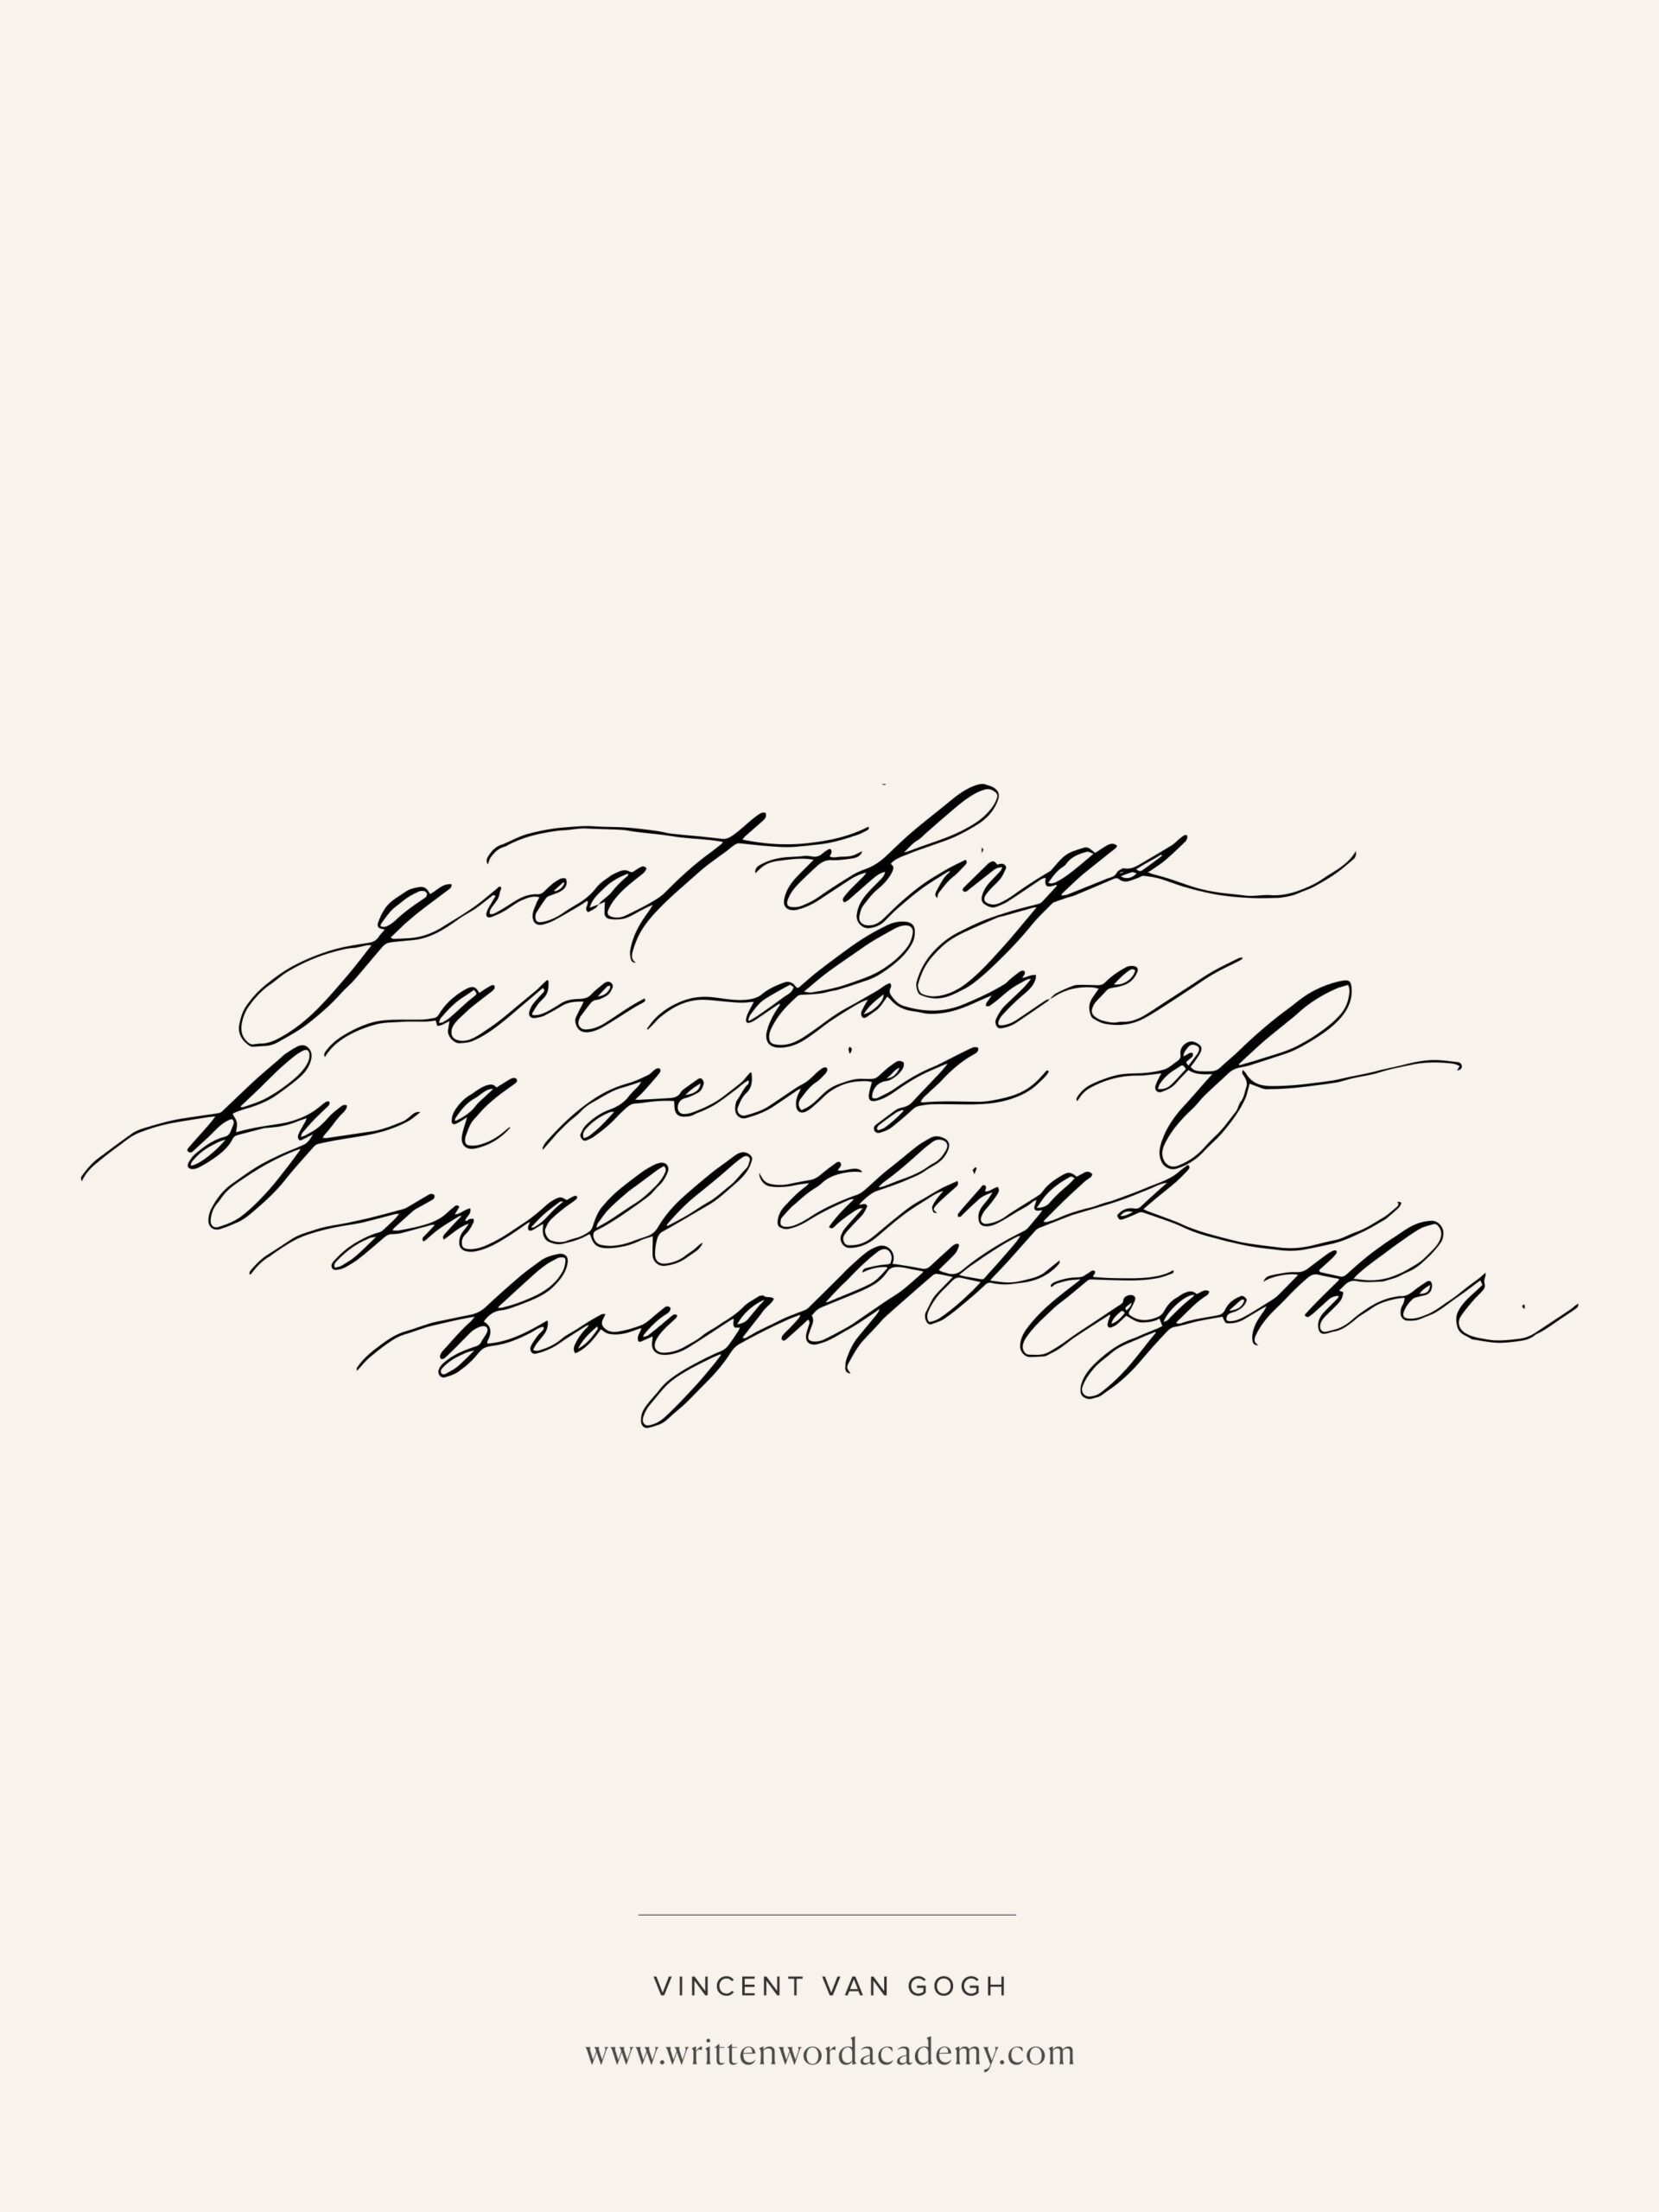 great things
are done
by a series of
small things
brought together.
VINCENT VAN GOGH
www.writtenwordacademy.com